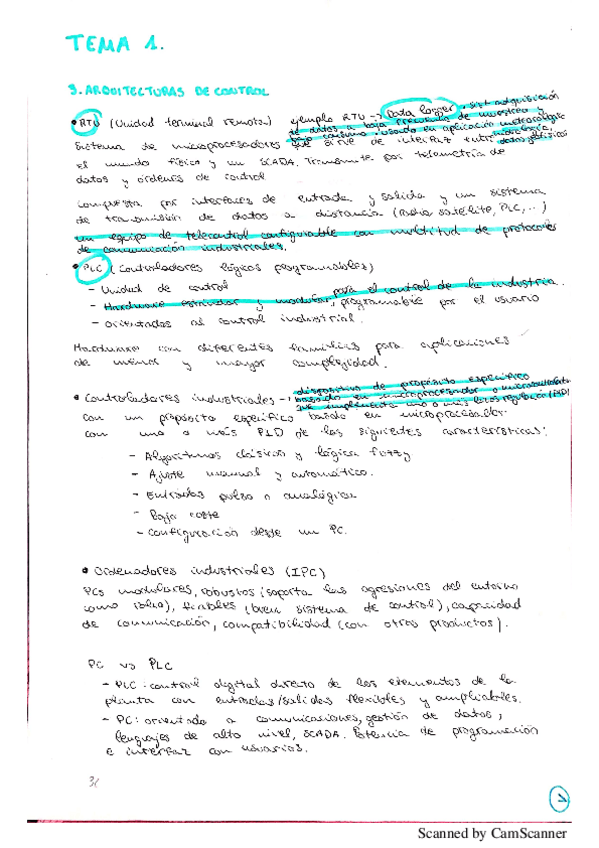 TEMA 1.
3. ARQUITECTURAS DE CONTROL
• RTU (Unidad terminal remota) ejemplo RTU → Data logger, sist adquisición
de datos a baja frecuencia de muestreo y
bajo consumo usado en aplicación meteorológica
Sistema de microprocesadores que sirve de interfaz entre
el mundo físico y un SCADA. Transmite por telemetría de
datos y órdenes de control.
Compuesta por interfaces de entrada y salida y un sistema
de transmisión de datos a distancia (Radio satélite, PLC, ..)
un equipo de telecontrol configurable con multitud de protocolos
de comunicación industriales.
• PLC (Controladores lógicos programables)
- Unidad de control para el control de la industria.
- Hardware estandar y modular, programable por el usuario
- Orientados al control industrial.
Hardware con diferentes familias para aplicaciones
de menor y mayor complejidad.
• Controladores industriales → dispositivo de propósito específico
basado en microprocesador o microcontrolador
que implemente uno o más lazos regulación (PID)
con un propósito específico basado en microprocesador
con uno o más PID de las siguientes características:
- Algoritmos clásicos y lógica fuzzy
- Ajuste manual y automático.
- Entradas pulso o analógica
- Bajo coste
- Configuración desde un PC.
• Ordenadores industriales (IPC)
PCs modulares, robustos (soporta las agresiones del entorno
como polvo), fiables (buen sistema de control), capacidad
de comunicación, compatibilidad (con otros productos).
PC vs PLC
- PLC: control digital directo de los elementos de la
planta con entradas/salidas flexibles y ampliables.
- PC: orientado a comunicaciones, gestión de datos,
lenguajes de alto nivel, SCADA. Potencia de programación
e interfaz con usuarios.
Scanned by CamScanner